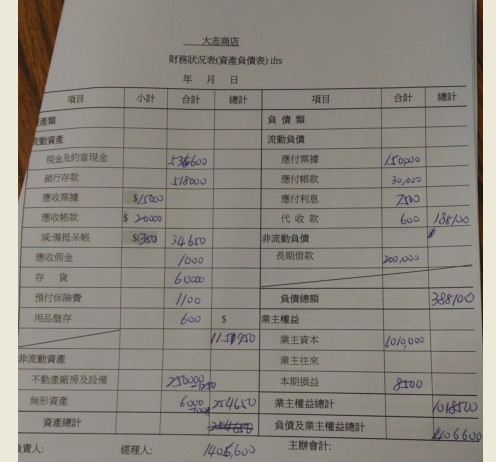 大志商店
財務狀況表(資產負債表) ifrs
年 月 日
項目 小計 合計 總計 項目 合計 總計
產類 負債類
流動資產 流動負債
現金及約當現金 536600 應付票據 150,000
銀行存款 518000 應付帳款 30,000
應收票據 $15000 應付利息 7500
應收帳款 $ 20000 代收款 600 188100
減:備抵呆帳 $(350) 34650 非流動負債
應收佣金 1000 長期借款 200,000
存貨 60000
預付保險費 1100 負債總額 388100
用品盤存 600 $ 業主權益
1151950 業主資本 1,010,000
非流動資產 業主往來
不動產廠房及設備 250000 本期損益 8500
無形資產 6000 254650 業主權益總計 1018500
資產總計 254650 負債及業主權益總計 1406600
負責人: 經理人: 1406,600 主辦會計: